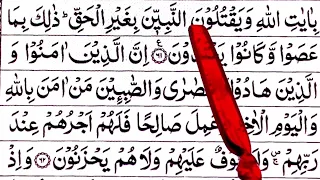 بِاٰيٰتِ اللّٰهِ وَيَقْتُلُوْنَ النَّبِيّٖنَ بِغَيْرِ الْحَقِّ ؕ ذٰلِكَ بِمَا
عَصَوْا وَّكَانُوْا ۝٦١ اِنَّ الَّذِيْنَ اٰمَنُوْا وَ
الَّذِيْنَ هَادُوْا وَالصّٰبِـِٕيْنَ مَنْ اٰمَنَ بِاللّٰهِ
وَالْيَوْمِ عَمِلَ صَالِحًا فَلَهُمْ اَجْرُهُمْ عِنْدَ
رَبِّهِمْ ۚ عَلَيْهِمْ وَلَا هُمْ يَحْزَنُوْنَ ۝٦٢ وَاِذْ